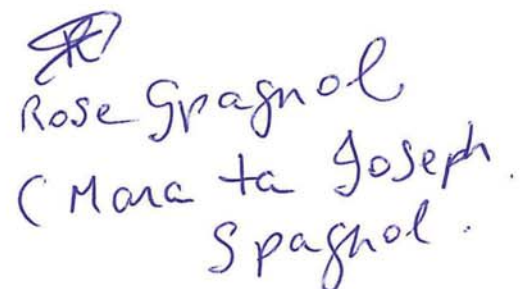 Rose Spagnol
(Mara ta Joseph.
Spagnol.